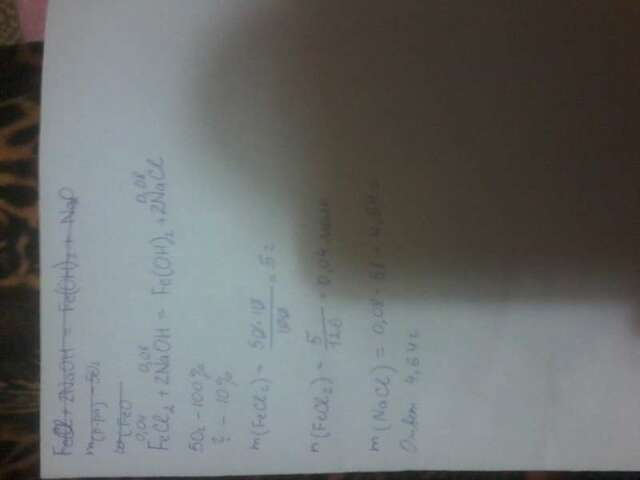 FeCl + 2NaOH = Fe(OH)2 + NaO
m(р-ра) - 50г
ω(FeO
0,04 0,08 0,08
FeCl2 + 2NaOH = Fe(OH)2 + 2NaCl
50г - 100%
? - 10%
m(FeCl2) = 50·10/100 = 5г
n(FeCl2) = 5/126 = 0,04 моль
m(NaCl) = 0,08·58 = 4,64г
Ответ 4,64г